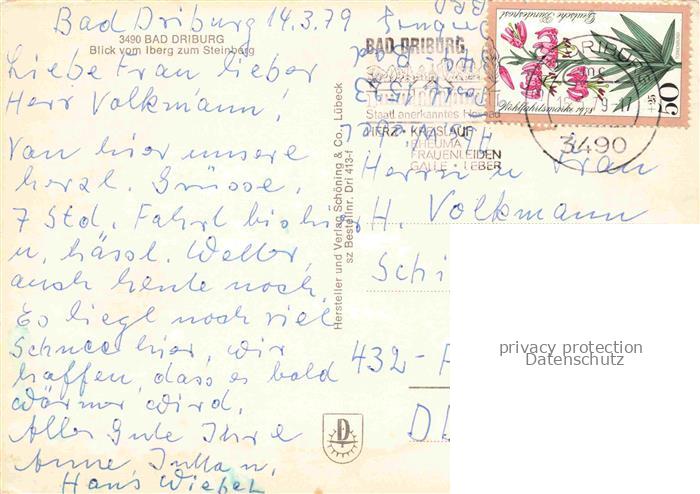 Bad Driburg 14.3.79
3490 BAD DRIBURG
Blick vom Iberg zum Steinberg
Liebe Frau, lieber
Herr Volkmann,
Von hier unsere
herzl. Grüsse.
7 Std. Fahrt bis hier
u. hässl. Wetter,
auch heute noch.
Es liegt noch viel
Schnee hier, wir
hoffen, dass es bald
wärmer wird.
Alles Gute Ihre
Anne, Jutta u.
Hans
Hersteller und Verlag Schöning & Co., Lübeck
sz Bestellnr. Dri 413-f
BAD DRIBURG
Staatl anerkanntes Heilbad
HERZ - KREISLAUF
RHEUMA
FRAUENLEIDEN
GALLE • LEBER
Deutsche Bundespost
Wohlfahrtsmarke
50
+25
3490
Herrn u. Frau
H. Volkmann
432-
privacy protection
Datenschutz